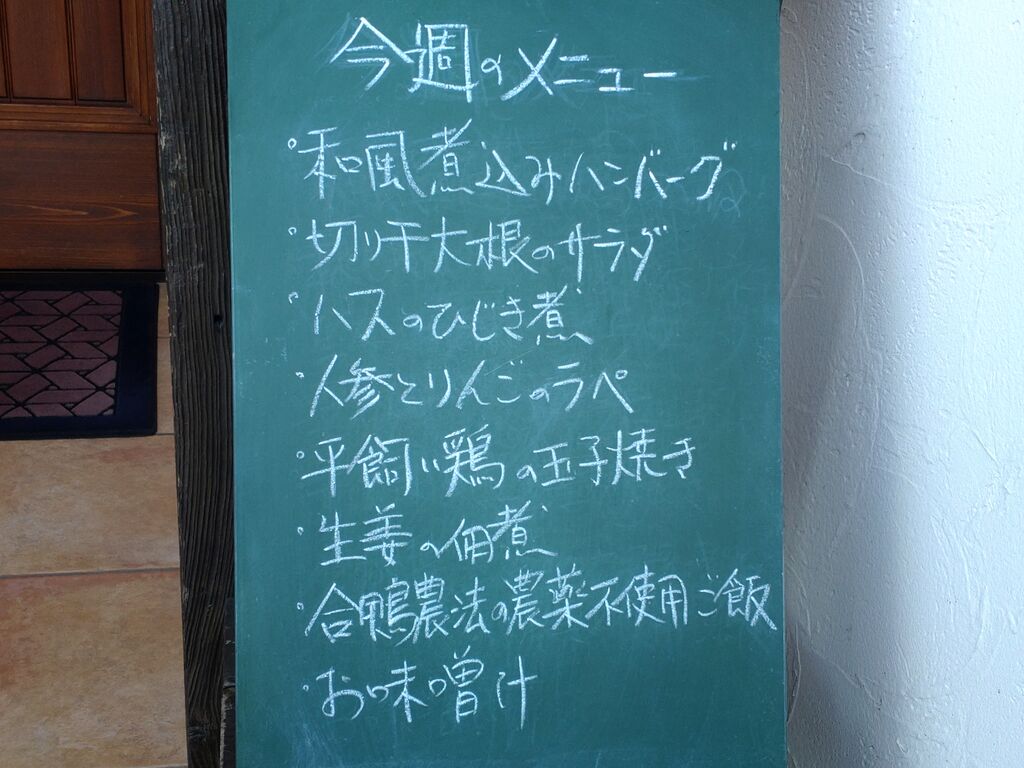 今週のメニュー
・和風煮込みハンバーグ
・切り干大根のサラダ
・ハスのひじき煮
・人参とりんごのラペ
・平飼い鶏の玉子焼き
・生姜の佃煮
・合鴨農法の農薬不使用ご飯
・お味噌汁